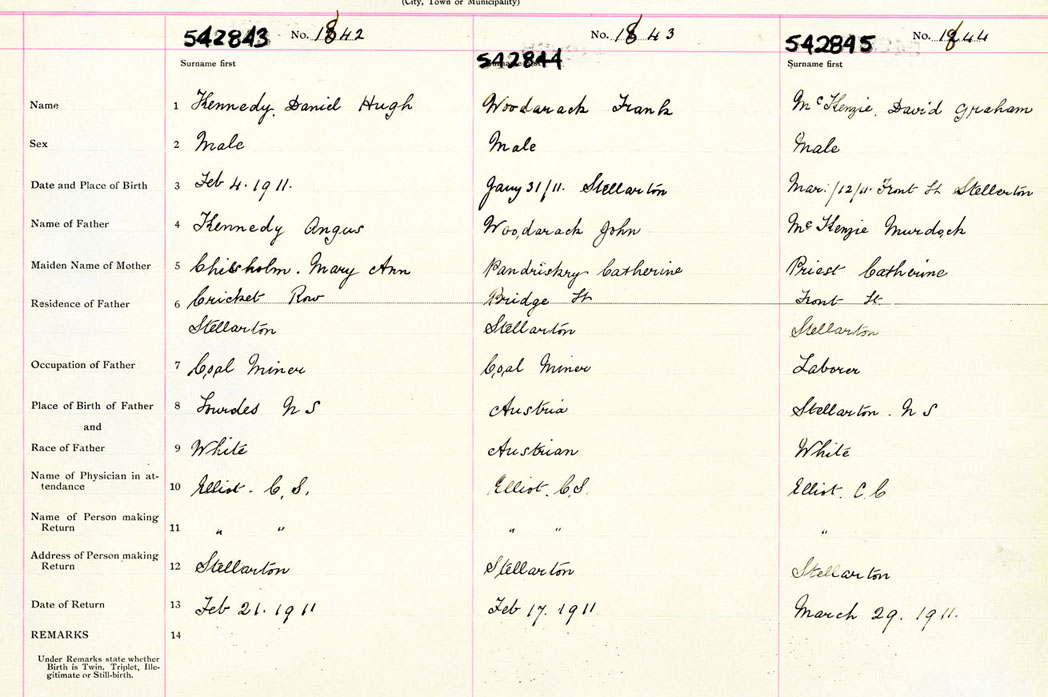 (City, Town or Municipality)
542843 No. 1842 No. 1843 542845 No. 1844
542844
Surname first Surname first
Name 1 Kennedy, Daniel Hugh Woodarack Frank McKenzie, David Graham
Sex 2 Male Male Male
Date and Place of Birth 3 Feb 4. 1911. Jany 31/11. Stellarton Mar: /12/11. Front St Stellerton
Name of Father 4 Kennedy Angus Woodarack John McKenzie Murdoch
Maiden Name of Mother 5 Chisholm. Mary Ann Pandriskry Catherine Priest Catherine
Residence of Father 6 Cricket Row Bridge St Front St
Stellarton Stellarton Stellarton
Occupation of Father 7 Coal Miner Coal Miner Laborer
Place of Birth of Father 8 Lourdes N S Austria Stellarton. N S
and
Race of Father 9 White Austrian White
Name of Physician in at-
tendance 10 Elliot. C. S. Elliot. C.S. Elliot. C. C
Name of Person making
Return 11 " " " " "
Address of Person making
Return 12 Stellarton Stellarton Stellarton
Date of Return 13 Feb 21. 1911 Feb 17. 1911 March 29. 1911.
REMARKS 14
Under Remarks state whether
Birth is Twin. Triplet, Ille-
gitimate or Still-birth.